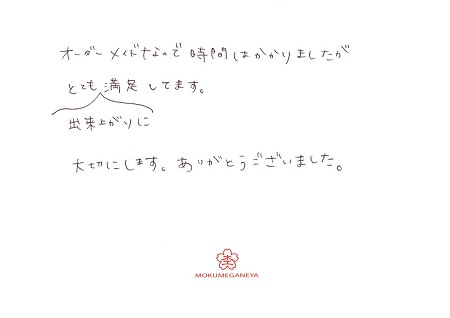 オーダーメイドなので時間はかかりましたが
とても満足してます。
出来上がりに
大切にします。ありがとうございました。
MOKUMEGANEYA